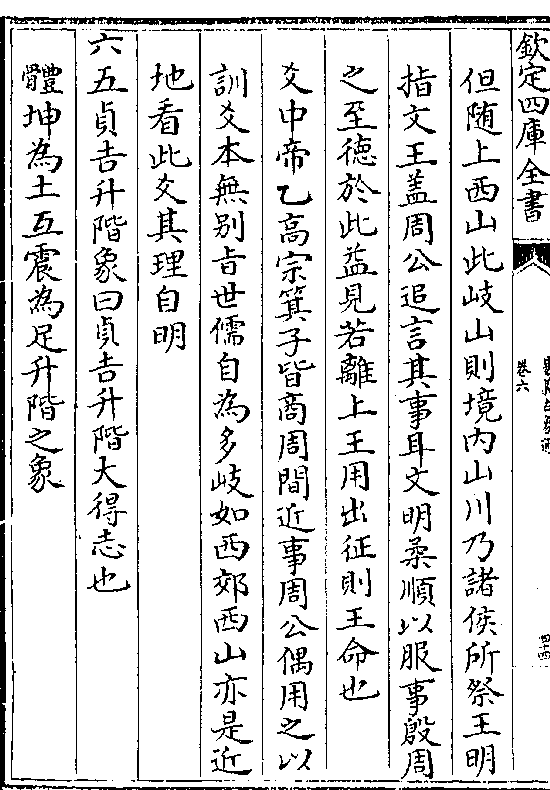 欽定四庫全書
卷六
但随上西山此岐山則境内山川乃諸侯所祭王明
指文王蓋周公追言其事耳文明柔順以服事殷周
之至德於此益見若離上王用出征則王命也
爻中帝乙高宗箕子皆商周間近事周公偶用之以
訓爻本無别㫖世儒自為多岐如西郊西山亦是近
地看此爻其理自明
六五貞吉升階象曰貞吉升階大得志也
體坤為土互震為足升階之象